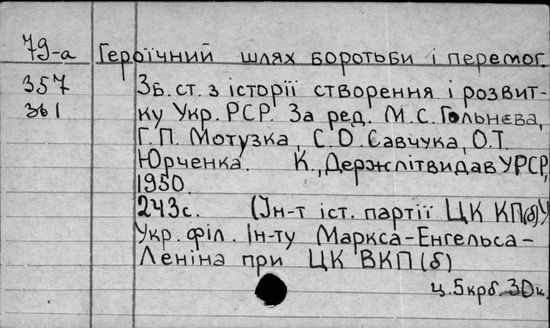 79-а Героїчний шлях боротьби і перемог.
357 Зб. ст. з історії створення і розвит-
зы ку Укр. РСР. За ред. М.С. Гольнєва,
Г.П. Мотузка, С.О. Савчука, О.Т.
Юрченка. К., Держлітвидав УРСР,
1950.
243с. (Ін-т іст. партії ЦК КП(б)У
Укр. філ. Ін-ту Маркса-Енгельса-
Леніна при ЦК ВКП(б)
ц. 5крб. 30к.